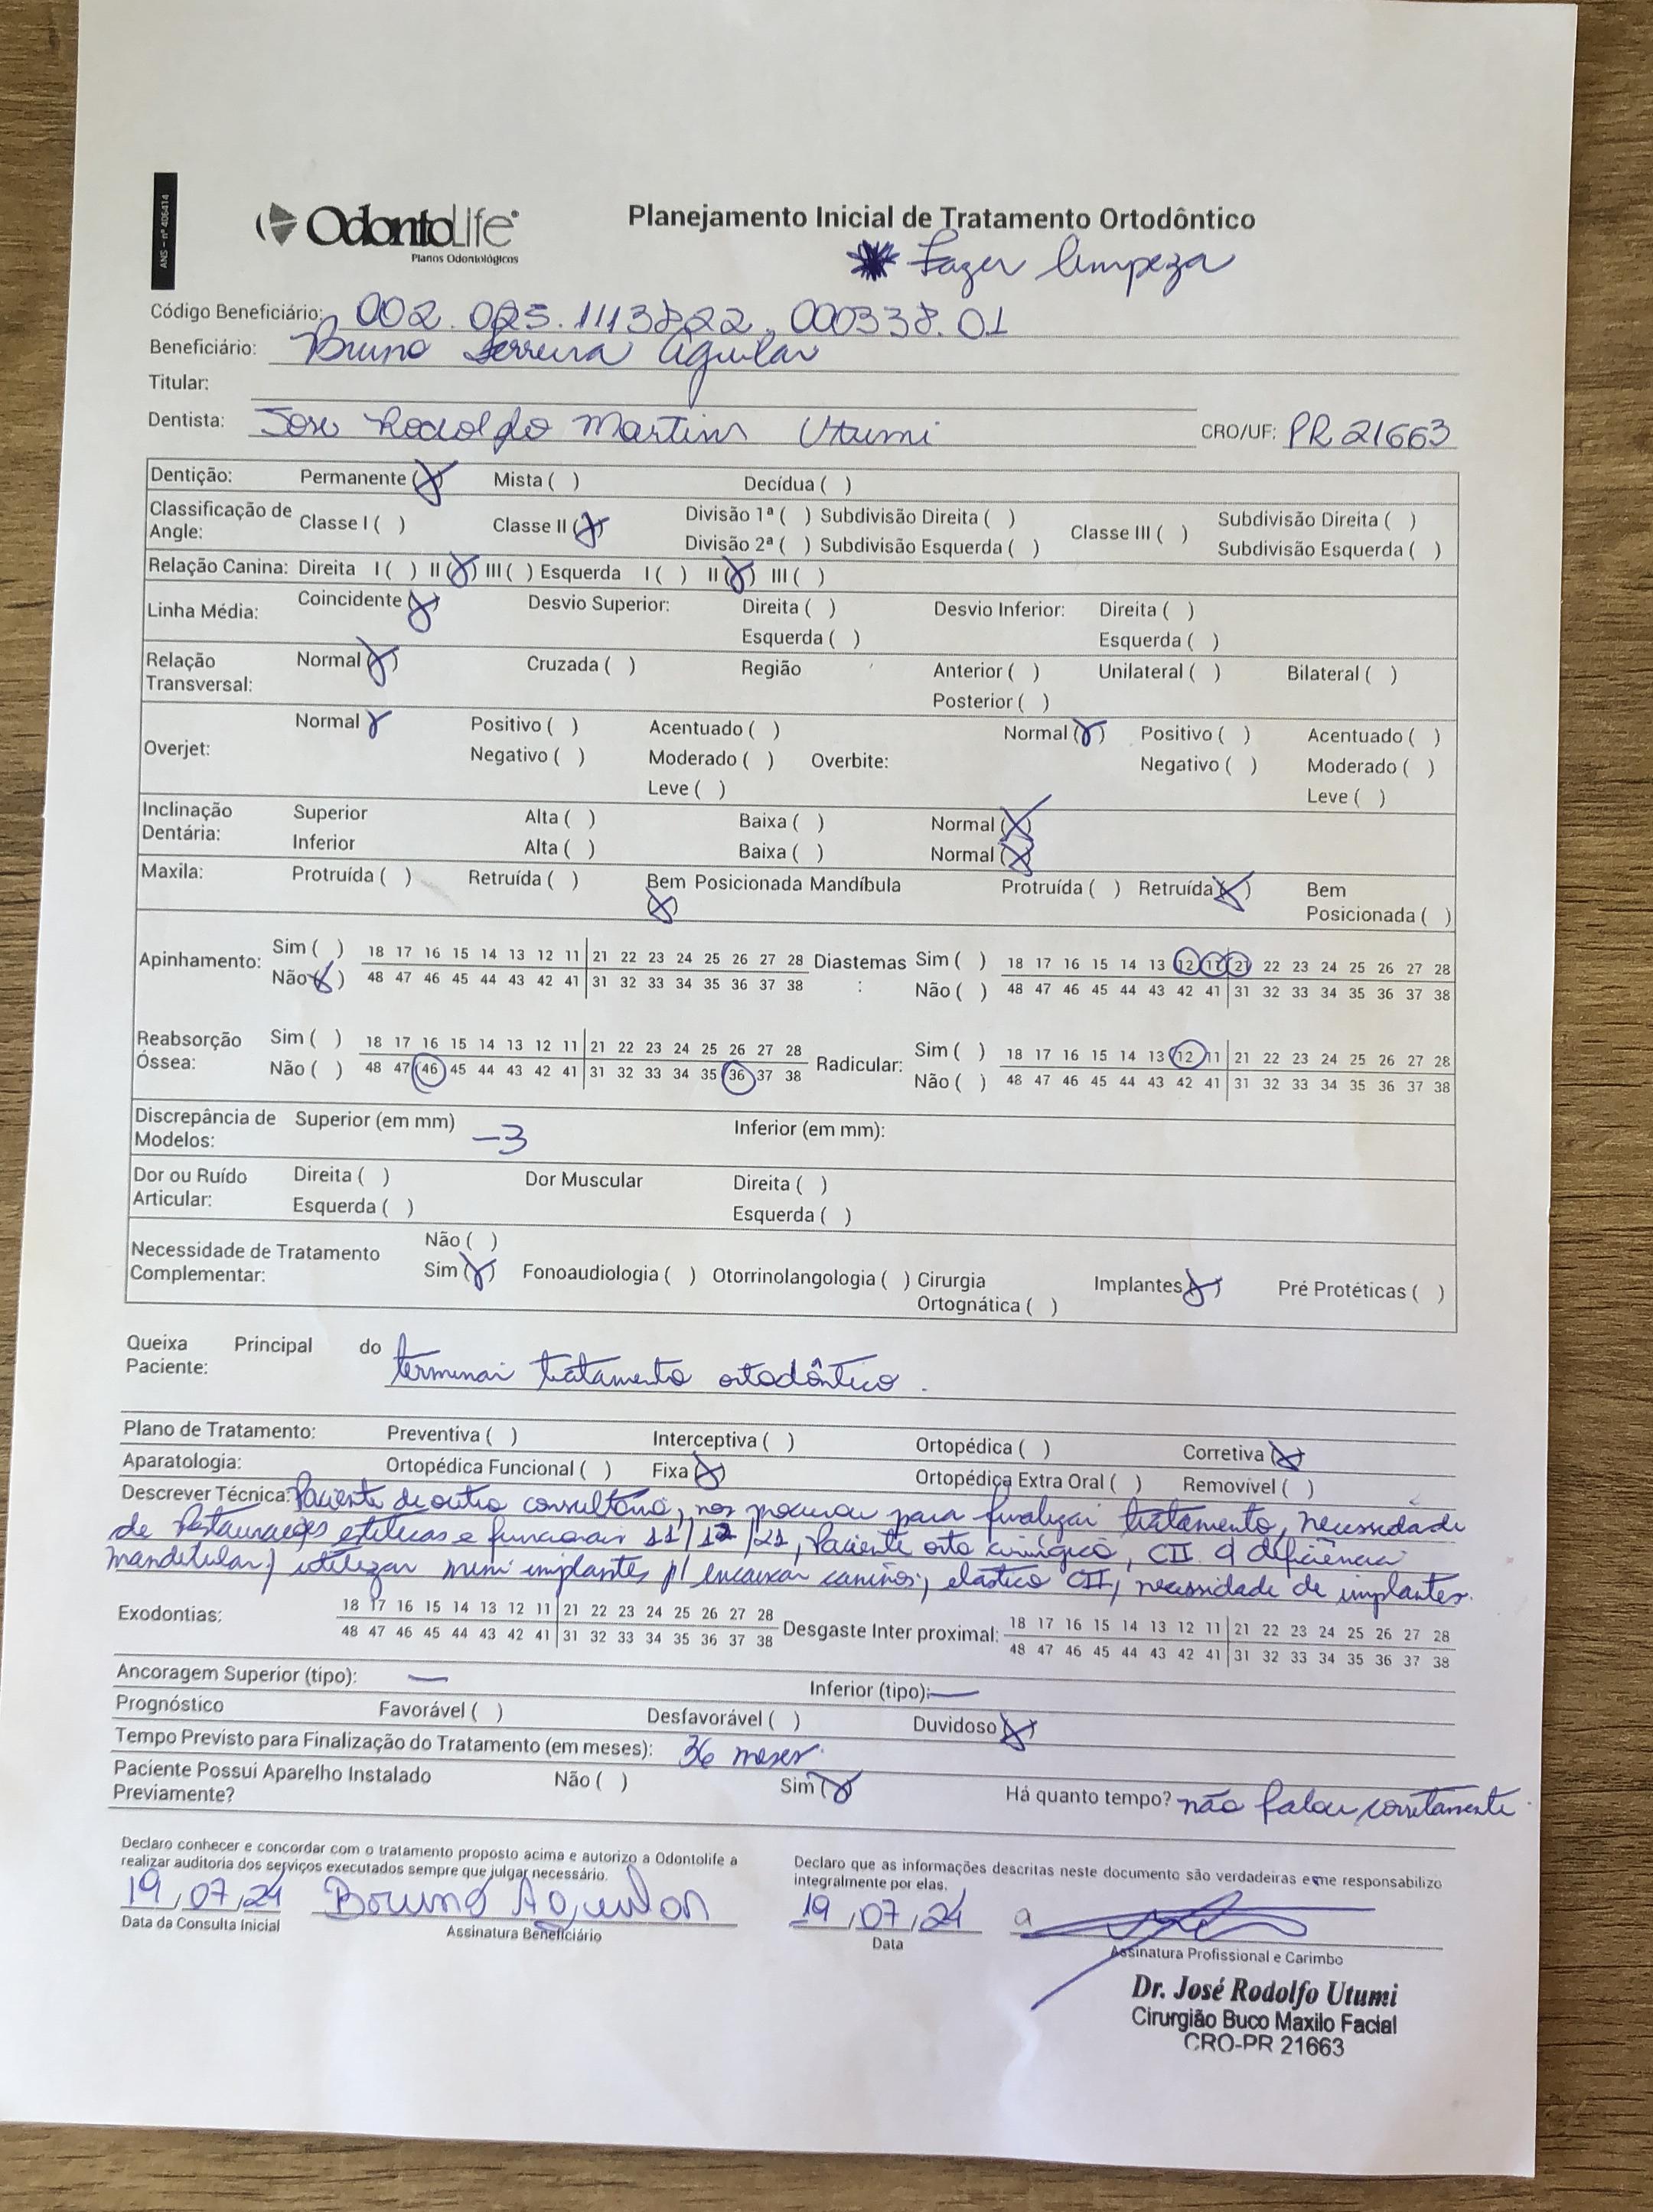 ANS - nº 406414
OdontoLife®
Planos Odontológicos
Planejamento Inicial de Tratamento Ortodôntico
* Fazer limpeza
Código Beneficiário: 002.025.1113822.000338.01
Beneficiário: Bruno Ferreira Aguilar
Titular:
Dentista: Jose Rodolfo Martins Utumi CRO/UF: PR 21663
Dentição: Permanente (X) Mista ( ) Decídua ( )
Classificação de Angle: Classe I ( ) Classe II (X) Divisão 1ª ( ) Subdivisão Direita ( ) Classe III ( ) Subdivisão Direita ( )
Divisão 2ª ( ) Subdivisão Esquerda ( ) Subdivisão Esquerda ( )
Relação Canina: Direita I ( ) II (X) III ( ) Esquerda I ( ) II (X) III ( )
Linha Média: Coincidente (X) Desvio Superior: Direita ( ) Desvio Inferior: Direita ( )
Esquerda ( ) Esquerda ( )
Relação Transversal: Normal (X) Cruzada ( ) Região Anterior ( ) Unilateral ( ) Bilateral ( )
Posterior ( )
Overjet: Normal X Positivo ( ) Acentuado ( ) Normal (X) Positivo ( ) Acentuado ( )
Negativo ( ) Moderado ( ) Overbite: Negativo ( ) Moderado ( )
Leve ( ) Leve ( )
Inclinação Dentária: Superior Alta ( ) Baixa ( ) Normal (X)
Inferior Alta ( ) Baixa ( ) Normal (X)
Maxila: Protruída ( ) Retruída ( ) Bem Posicionada (X) Mandíbula Protruída ( ) Retruída (X) Bem Posicionada ( )
Apinhamento: Sim ( ) 18 17 16 15 14 13 12 11 21 22 23 24 25 26 27 28 Diastemas: Sim ( ) 18 17 16 15 14 13 12 11 21 22 23 24 25 26 27 28
Não (X) 48 47 46 45 44 43 42 41 31 32 33 34 35 36 37 38 Não ( ) 48 47 46 45 44 43 42 41 31 32 33 34 35 36 37 38
Reabsorção Óssea: Sim ( ) 18 17 16 15 14 13 12 11 21 22 23 24 25 26 27 28 Radicular: Sim ( ) 18 17 16 15 14 13 12 11 21 22 23 24 25 26 27 28
Não ( ) 48 47 46 45 44 43 42 41 31 32 33 34 35 36 37 38 Não ( ) 48 47 46 45 44 43 42 41 31 32 33 34 35 36 37 38
Discrepância de Modelos: Superior (em mm) -3 Inferior (em mm):
Dor ou Ruído Articular: Direita ( ) Dor Muscular Direita ( )
Esquerda ( ) Esquerda ( )
Necessidade de Tratamento Complementar: Não ( )
Sim (X) Fonoaudiologia ( ) Otorrinolangologia ( ) Cirurgia Ortognática ( ) Implantes (X) Pré Protéticas ( )
Queixa Principal do Paciente: terminar tratamento ortodôntico.
Plano de Tratamento: Preventiva ( ) Interceptiva ( ) Ortopédica ( ) Corretiva (X)
Aparatologia: Ortopédica Funcional ( ) Fixa (X) Ortopédica Extra Oral ( ) Removível ( )
Descrever Técnica: Paciente de outro consultório, nos procurou para finalizar tratamento, necessidade
de Restaurações estéticas e funcionais 11/12/21, Paciente orto cirúrgico, CII c/ deficiência
mandibular, utilizar mini implantes p/ encaixar caninos, elástico CII, necessidade de implantes.
Exodontias: 18 17 16 15 14 13 12 11 21 22 23 24 25 26 27 28 Desgaste Inter proximal: 18 17 16 15 14 13 12 11 21 22 23 24 25 26 27 28
48 47 46 45 44 43 42 41 31 32 33 34 35 36 37 38 48 47 46 45 44 43 42 41 31 32 33 34 35 36 37 38
Ancoragem Superior (tipo): — Inferior (tipo): —
Prognóstico Favorável ( ) Desfavorável ( ) Duvidoso (X)
Tempo Previsto para Finalização do Tratamento (em meses): 36 meses.
Paciente Possui Aparelho Instalado Previamente? Não ( ) Sim (X) Há quanto tempo? não falou corretamente.
Declaro conhecer e concordar com o tratamento proposto acima e autorizo a Odontolife a
realizar auditoria dos serviços executados sempre que julgar necessário.
Declaro que as informações descritas neste documento são verdadeiras e me responsabilizo
integralmente por elas.
19/07/24 Bruno Aguilar 19/07/24
Data da Consulta Inicial Assinatura Beneficiário Data Assinatura Profissional e Carimbo
Dr. José Rodolfo Utumi
Cirurgião Buco Maxilo Facial
CRO-PR 21663